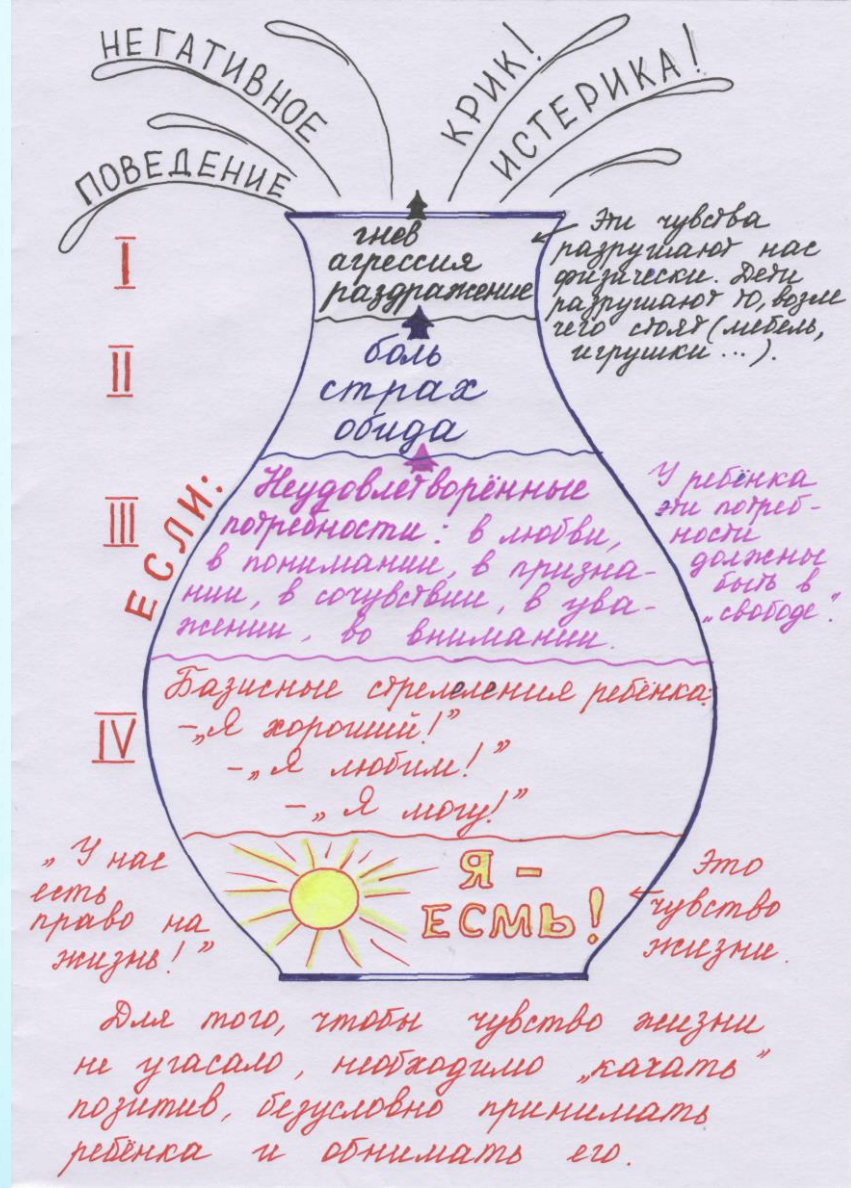 НЕГАТИВНОЕ
ПОВЕДЕНИЕ
КРИК!
ИСТЕРИКА!
I
гнев
агрессия
раздражение
Эти чувства
разрушают нас
физически. Дети
разрушают то, возле
чего стоят (мебель,
игрушки...).
II
боль
страх
обида
ЕСЛИ:
III
Неудовлетворённые
потребности: в любви,
в понимании, в призна-
нии, в сочувствии, в ува-
жении, во внимании.
У ребёнка
эти потреб-
ности
должны
быть в
„свободе".
IV
Базисные стремеления ребёнка:
-„Я хороший!"
-„Я любим!"
-„Я могу!"
„У нас
есть
право на
жизнь!"
Я -
ЕСМЬ!
Это
чувство
жизни.
Для того, чтобы чувство жизни
не угасало, необходимо „качать"
позитив, безусловно принимать
ребёнка и обнимать его.